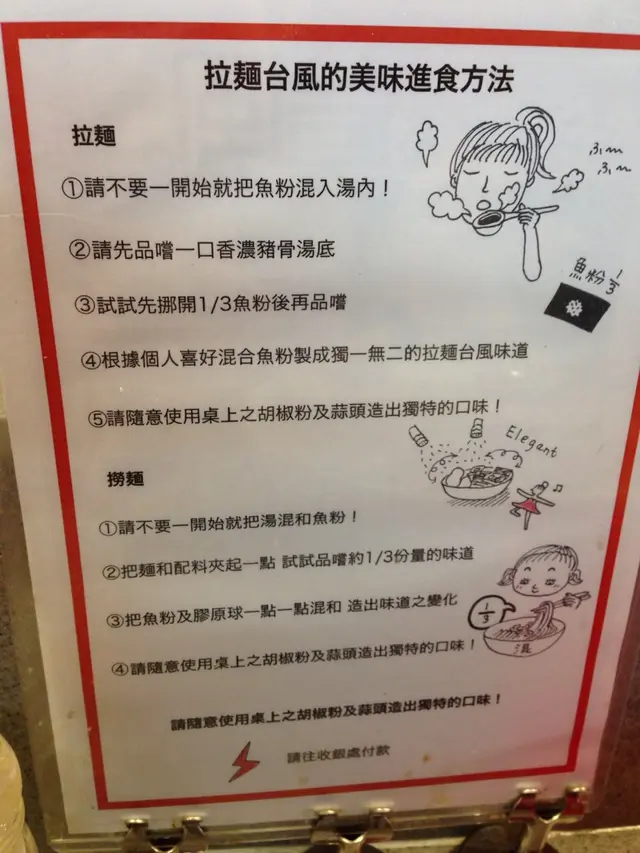 拉麵台風的美味進食方法
拉麵
①請不要一開始就把魚粉混入湯內！
ふ〜
ふ〜
②請先品嚐一口香濃豬骨湯底
魚粉1/3
③試試先挪開1/3魚粉後再品嚐
④根據個人喜好混合魚粉製成獨一無二的拉麵台風味道
⑤請隨意使用桌上之胡椒粉及蒜頭造出獨特的口味！
Elegant
撈麵
①請不要一開始就把湯混和魚粉！
②把麵和配料夾起一點 試試品嚐約1/3份量的味道
③把魚粉及膠原球一點一點混和 造出味道之變化
1/3
混
④請隨意使用桌上之胡椒粉及蒜頭造出獨特的口味！
請隨意使用桌上之胡椒粉及蒜頭造出獨特的口味！
請往收銀處付款